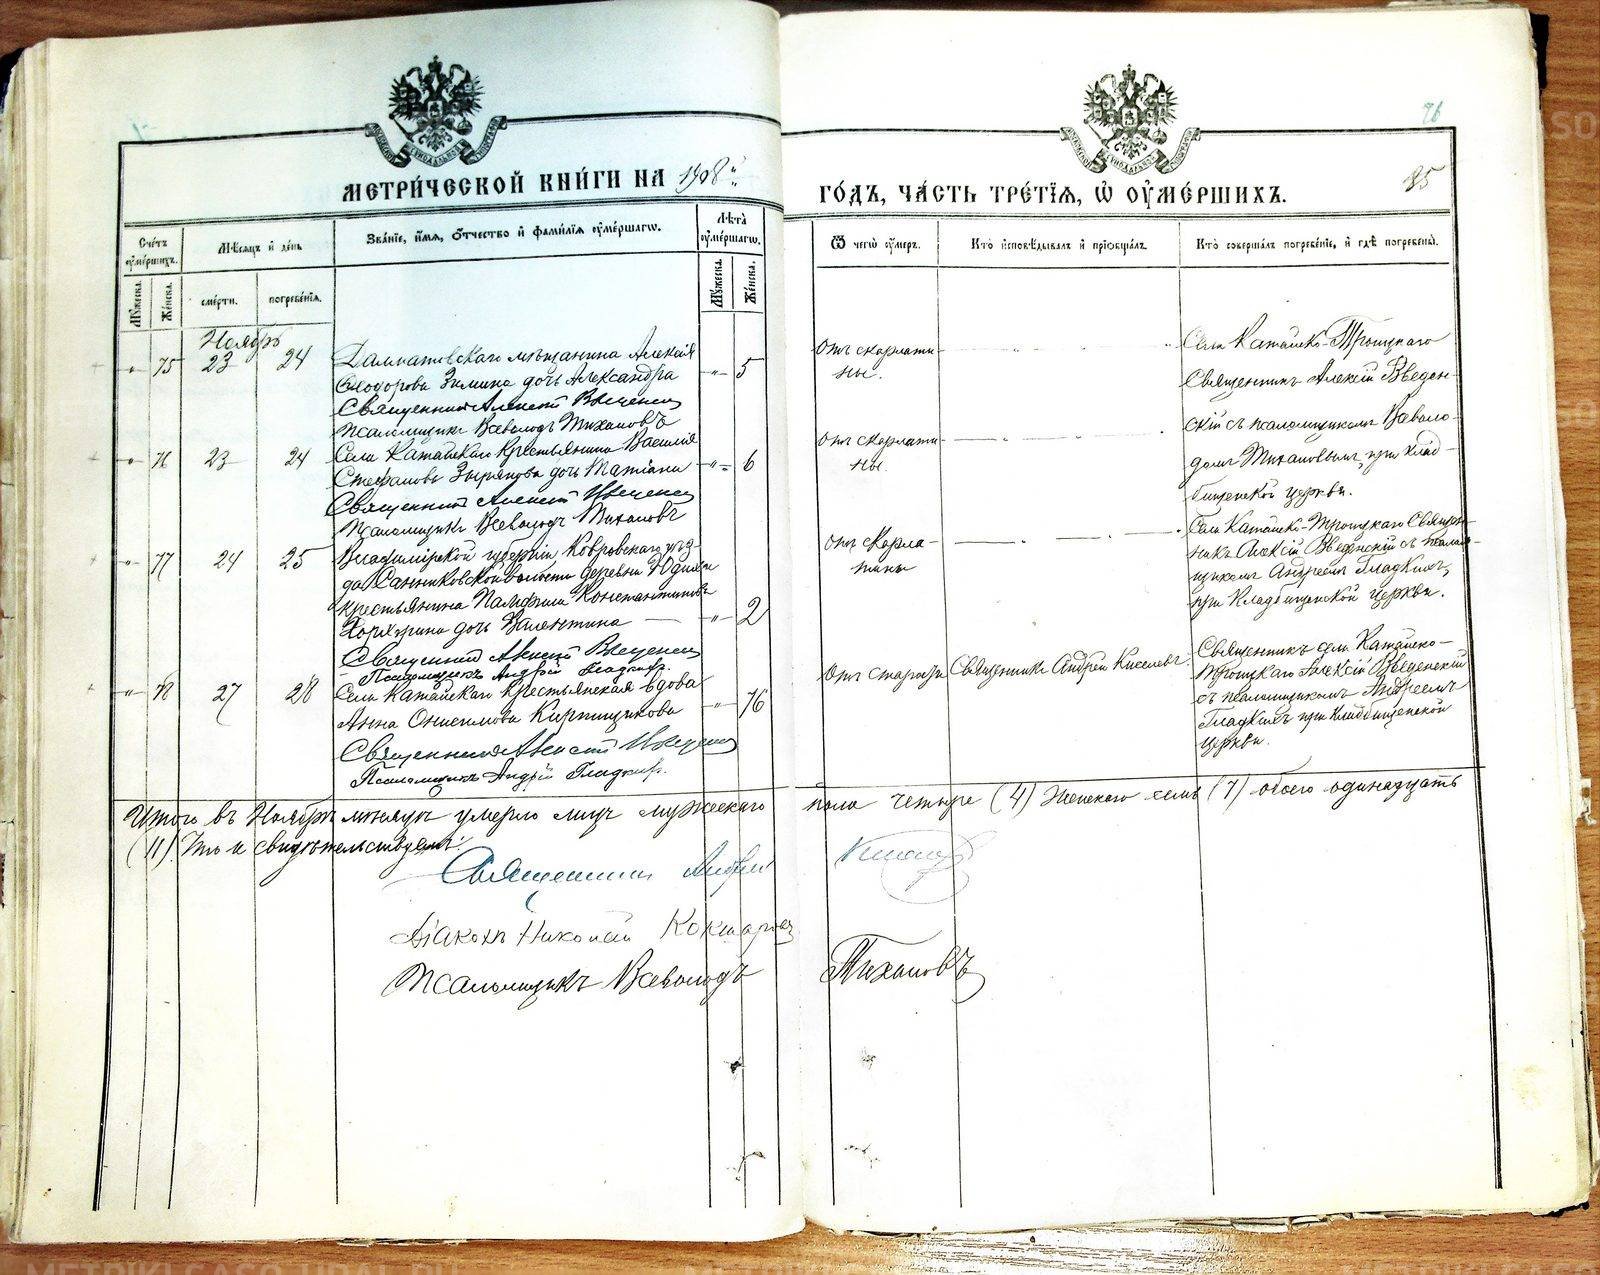 76
85
МЕТРИ́ЧЕСКОЙ КНИ́ГИ НА 1908
ГО́ДЪ, ЧА́СТЬ ТРЕ́ТЇѦ, Ѡ҆ ОУ҆МЕ́РШИХЪ.
Сче́тъ оу҆ме́ршихъ.
Мѣ́сѧцъ и҆ де́нь
Зва́нїе, и҆́мѧ, ѻ҆́тчество и҆ фами́лїѧ оу҆ме́ршагѡ.
Лѣ́та оу҆ме́ршагѡ.
Ѿ чегѡ̀ оу҆́меръ.
Кто̀ и҆сповѣ́дывалъ и҆ прїѡбща́лъ.
Кто̀ соверша́лъ погребе́нїе, и҆ гдѣ̀ погребены̀.
Мꙋ́жеска.
Же́нска.
сме́рти.
погребе́нїѧ.
Мꙋ́жеска.
Же́нска.
Ноябрь
75 23 24 Далматовскаго мѣщанина Алексія
Ѳеодорова Зимина дочь Александра 5
Священникъ Алексій Введенскій
Псаломщикъ Всеволодъ Тихановъ
Отъ скарлати-
ны.
Села Катайско-Троицкаго
Священникъ Алексій Введен-
скій съ псаломщикомъ Всеволо-
домъ Тихановымъ, при клад-
бищенской церкви.
76 23 24 Села Катайскаго крестьянина Василія
Стефанова Зырянова дочь Татіана 6
Священникъ Алексій Введенскій
Псаломщикъ Всеволодъ Тихановъ
Отъ скарлати-
ны.
77 24 25 Владимірской губерніи Ковровскаго уѣз-
да Санниковской волости деревни
крестьянина Памфила Константинова
дочь Валентина 2
Священникъ Алексій Введенскій
Псаломщикъ Андрей Гладкихъ.
Отъ скарла-
тины
Села Катайско-Троицкаго Священ-
никъ Алексій Введенскій съ псалом-
щикомъ Андреемъ Гладкихъ,
при Кладбищенской церкви.
78 27 28 Села Катайскаго крестьянская вдова
Анна Онисимова Кирпищикова 76
Священникъ Алексій Введенскій
Псаломщикъ Андрей Гладкихъ.
Отъ старости
Священникъ Андрей Киселевъ.
Священникъ села Катайско-
Троицкаго Алексій Введенскій
съ псаломщикомъ Андреемъ
Гладкихъ при Кладбищенской
церкви.
Итого въ Ноябрѣ мѣсяцѣ умерло лицъ мужескаго пола четыре (4) женскаго семь (7) обоего одинадцать
(11). Въ чемъ и свидѣтельствуемъ:
Священникъ Андрей Киселевъ
Діаконъ Николай Кокшаровъ
Псаломщикъ Всеволодъ Тихановъ